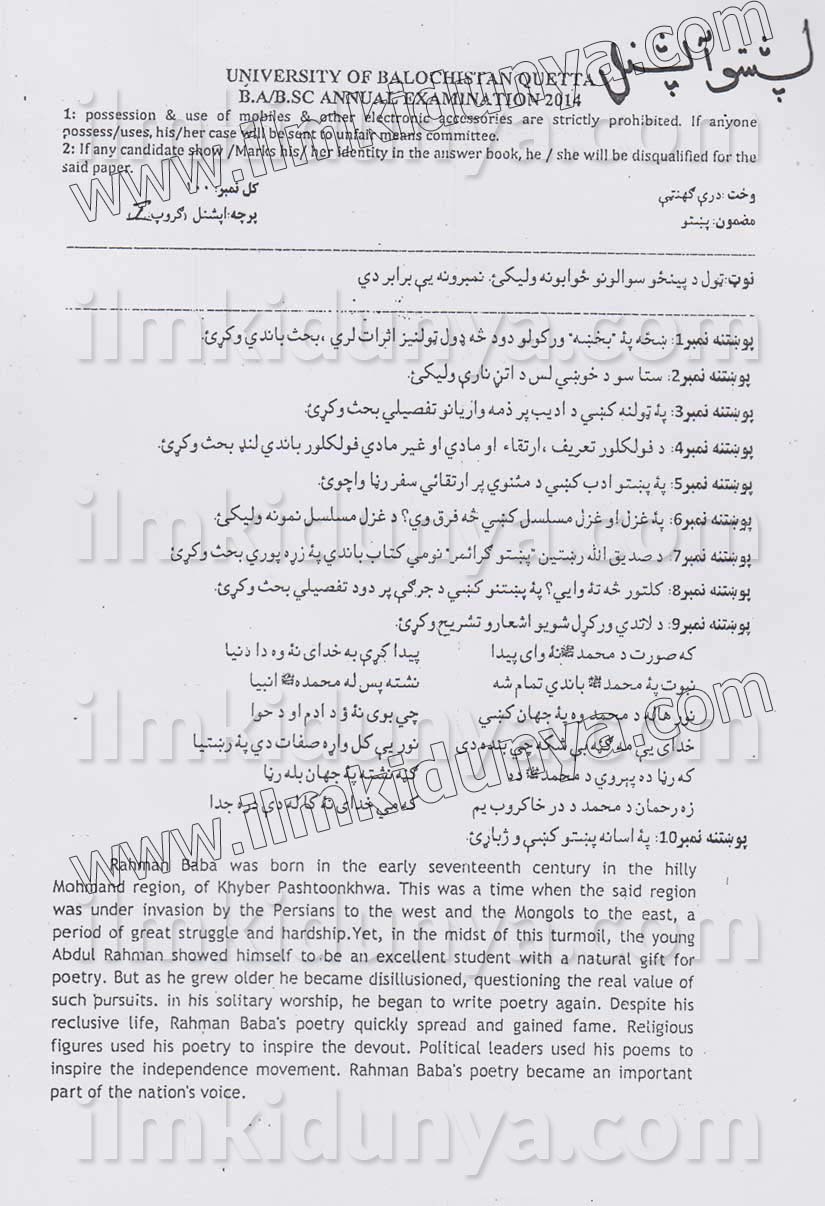 پښتو آپشنل
UNIVERSITY OF BALOCHISTAN QUETTA
B.A/B.SC ANNUAL EXAMINATION 2014
1: possession & use of mobiles & other electronic accessories are strictly prohibited. If anyone
possess/uses, his/her case will be sent to unfair means committee.
2: If any candidate show /Marks his/ her identity in the answer book, he / she will be disqualified for the
said paper.
وخت: درې ګهنټې کل نمبر: ۱۰۰
مضمون: پښتو پرچه: اپشنل ګروپ: I
نوټ: ټول د پينځو سوالونو ځوابونه وليکئ. نمبرونه يې برابر دي
پوښتنه نمبر1: ښځه پۀ "بخښه" ورکولو دود څه ډول ټولنيز اثرات لري، بحث باندي وکړئ.
پوښتنه نمبر2: ستا سو د خوښي لس د اتڼ نارې وليکئ.
پوښتنه نمبر3: پۀ ټولنه کښي د اديب پر ذمه واريانو تفصيلي بحث وکړئ.
پوښتنه نمبر4: د فولکلور تعريف، ارتقاء او مادي او غير مادي فولکلور باندي لنډ بحث وکړئ.
پوښتنه نمبر5: پۀ پښتو ادب کښي د مثنوي پر ارتقائي سفر رڼا واچوئ.
پوښتنه نمبر6: پۀ غزل او غزل مسلسل کښي څه فرق وي؟ د غزل مسلسل نمونه وليکئ.
پوښتنه نمبر7: د صديق الله رښتين "پښتو ګرائمر" نومي کتاب باندي پۀ زړه پوري بحث وکړئ.
پوښتنه نمبر8: کلتور څه تۀ وايي؟ پۀ پښتنو کښي د جرګې پر دود تفصيلي بحث وکړئ.
پوښتنه نمبر9: د لاندي ورکړل شويو اشعارو تشريح وکړئ.
که صورت د محمد ﷺ نۀ وای پيدا پيدا کړې به خدای نۀ وه دا دنيا
نبوت پۀ محمد ﷺ باندي تمام شه نشته پس له محمده ﷺ انبيا
نور هاله د محمد وه پۀ جهان کښي چې بوی نۀ ؤ د ادم او د حوا
خدای يې مه ګڼه بې شکه چې بنده دی نور يې کل واړه صفات دي پۀ رښتيا
که رڼا ده پيروي د محمد ﷺ ده ګڼه نشته پۀ جهان بله رڼا
زه رحمان د محمد د در خاکروب يم که مې خدای نۀ کا له دې دره جدا
پوښتنه نمبر10: پۀ اسانه پښتو کښي و ژباړئ.
Rahman Baba was born in the early seventeenth century in the hilly
Mohmand region, of Khyber Pashtoonkhwa. This was a time when the said region
was under invasion by the Persians to the west and the Mongols to the east, a
period of great struggle and hardship.Yet, in the midst of this turmoil, the young
Abdul Rahman showed himself to be an excellent student with a natural gift for
poetry. But as he grew older he became disillusioned, questioning the real value of
such pursuits. in his solitary worship, he began to write poetry again. Despite his
reclusive life, Rahman Baba's poetry quickly spread and gained fame. Religious
figures used his poetry to inspire the devout. Political leaders used his poems to
inspire the independence movement. Rahman Baba's poetry became an important
part of the nation's voice.
www.ilmkidunya.com
ilmkidunya.com
ilmkidunya.com
ilmkidunya.com
www.ilmkidunya.com
ilmkidunya.com
ilmkidunya.com